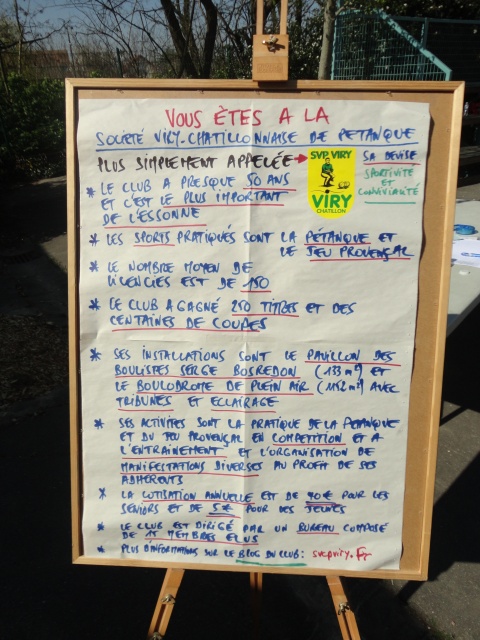 VOUS ÊTES A LA
SOCIÉTÉ VIRY-CHATILLONNAISE DE PETANQUE
PLUS SIMPLEMENT APPELÉE
SVP VIRY
VIRY
CHATILLON
SA DEVISE
SPORTIVITE
ET
CONVIVIALITÉ
* LE CLUB A PRESQUE 50 ANS
ET C'EST LE PLUS IMPORTANT
DE L'ESSONNE
* LES SPORTS PRATIQUÉS SONT LA PETANQUE ET
LE JEU PROVENÇAL
* LE NOMBRE MOYEN DE
LICENCIES EST DE 150
* LE CLUB A GAGNÉ 250 TITRES ET DES
CENTAINES DE COUPES
* SES INSTALLATIONS SONT LE PAVILLON DES
BOULISTES SERGE BOSREDON (133 m²) ET
LE BOULODROME DE PLEIN AIR (1152 m²) AVEC
TRIBUNES ET ECLAIRAGE
* SES ACTIVITES SONT LA PRATIQUE DE LA PETANQUE
ET DU JEU PROVENÇAL EN COMPETITION ET A
L'ENTRAINEMENT ET L'ORGANISATION DE
MANIFESTATIONS DIVERSES AU PROFIT DE SES
ADHERENTS
* LA COTISATION ANNUELLE EST DE 40€ POUR LES
SÉNIORS ET DE 5€ POUR DES JEUNES
* LE CLUB EST DIRIGÉ PAR UN BUREAU COMPOSÉ
DE 15 MEMBRES ELUS
* PLUS D'INFORMATIONS SUR LE BLOG DU CLUB: svcpviry.fr